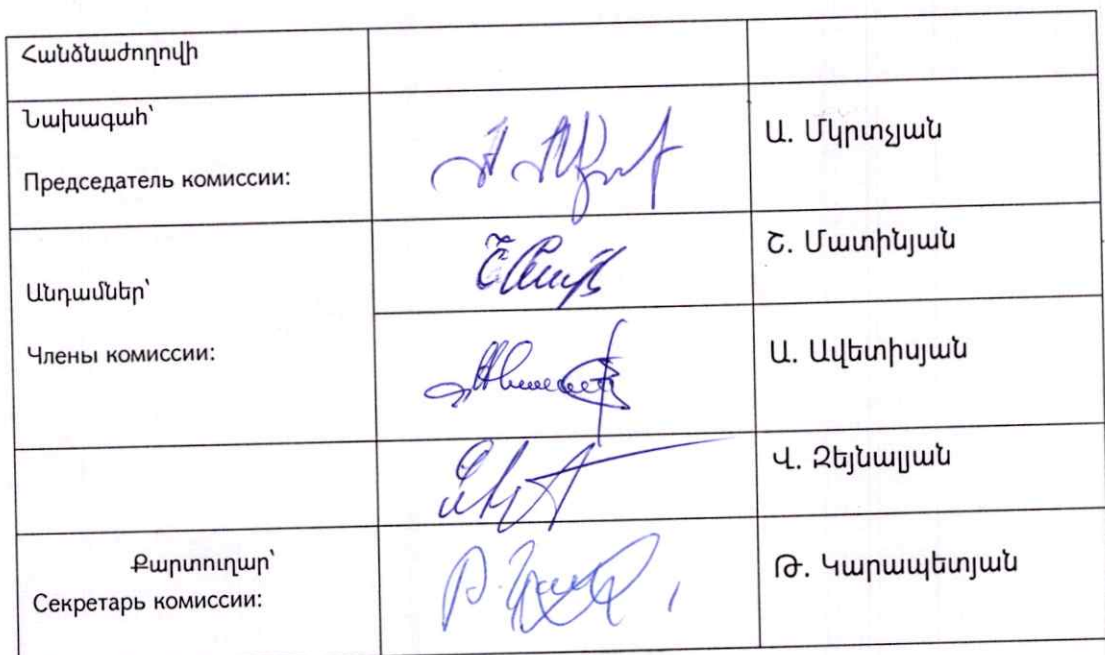 Հանձնաժողովի
Նախագահ՝
Председатель комиссии:
Ա. Մկրտչյան
Շ. Մատինյան
Անդամներ՝
Члены комиссии:
Ա. Ավետիսյան
Վ. Զեյնալյան
Քարտուղար՝
Секретарь комиссии:
Թ. Կարապետյան